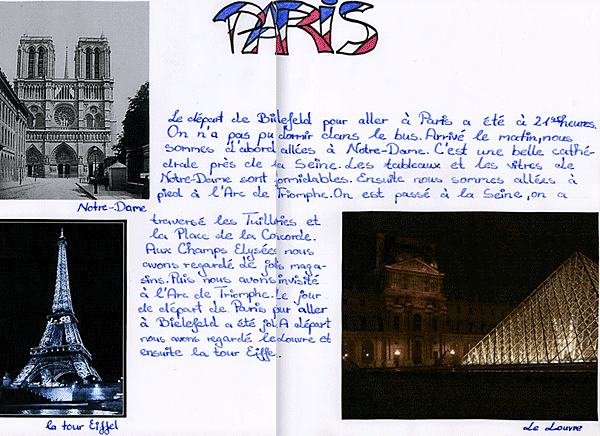 PARIS
Le départ de Bielefeld pour aller à Paris a été à 21 heures.
On n'a pas pu dormir dans le bus. Arrivé le matin, nous
sommes d'abord allées à Notre-Dame. C'est une belle cathé-
drale près de la Seine. Les tableaux et les vitres de
Notre-Dame sont formidables. Ensuite nous sommes allées à
pied à l'Arc de Triomphe. On est passé à la Seine, on a
traversé les Tuilliries et
la Place de la Concorde.
Aux Champs Elysées nous
avons regardé de jolis maga-
sins. Puis nous avons invisité
à l'Arc de Triomphe. Le jour
de départ de Paris pur aller
à Bielefeld a été joli. A départ
nous avons regardé le Louvre et
ensuite la tour Eiffel.
Notre-Dame
la tour Eiffel
Le Louvre